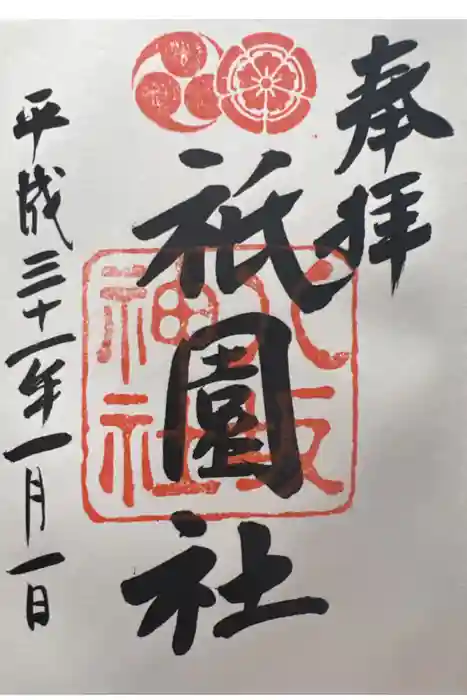 奉拝
祇園社
八坂
神社
平成三十一年一月一日